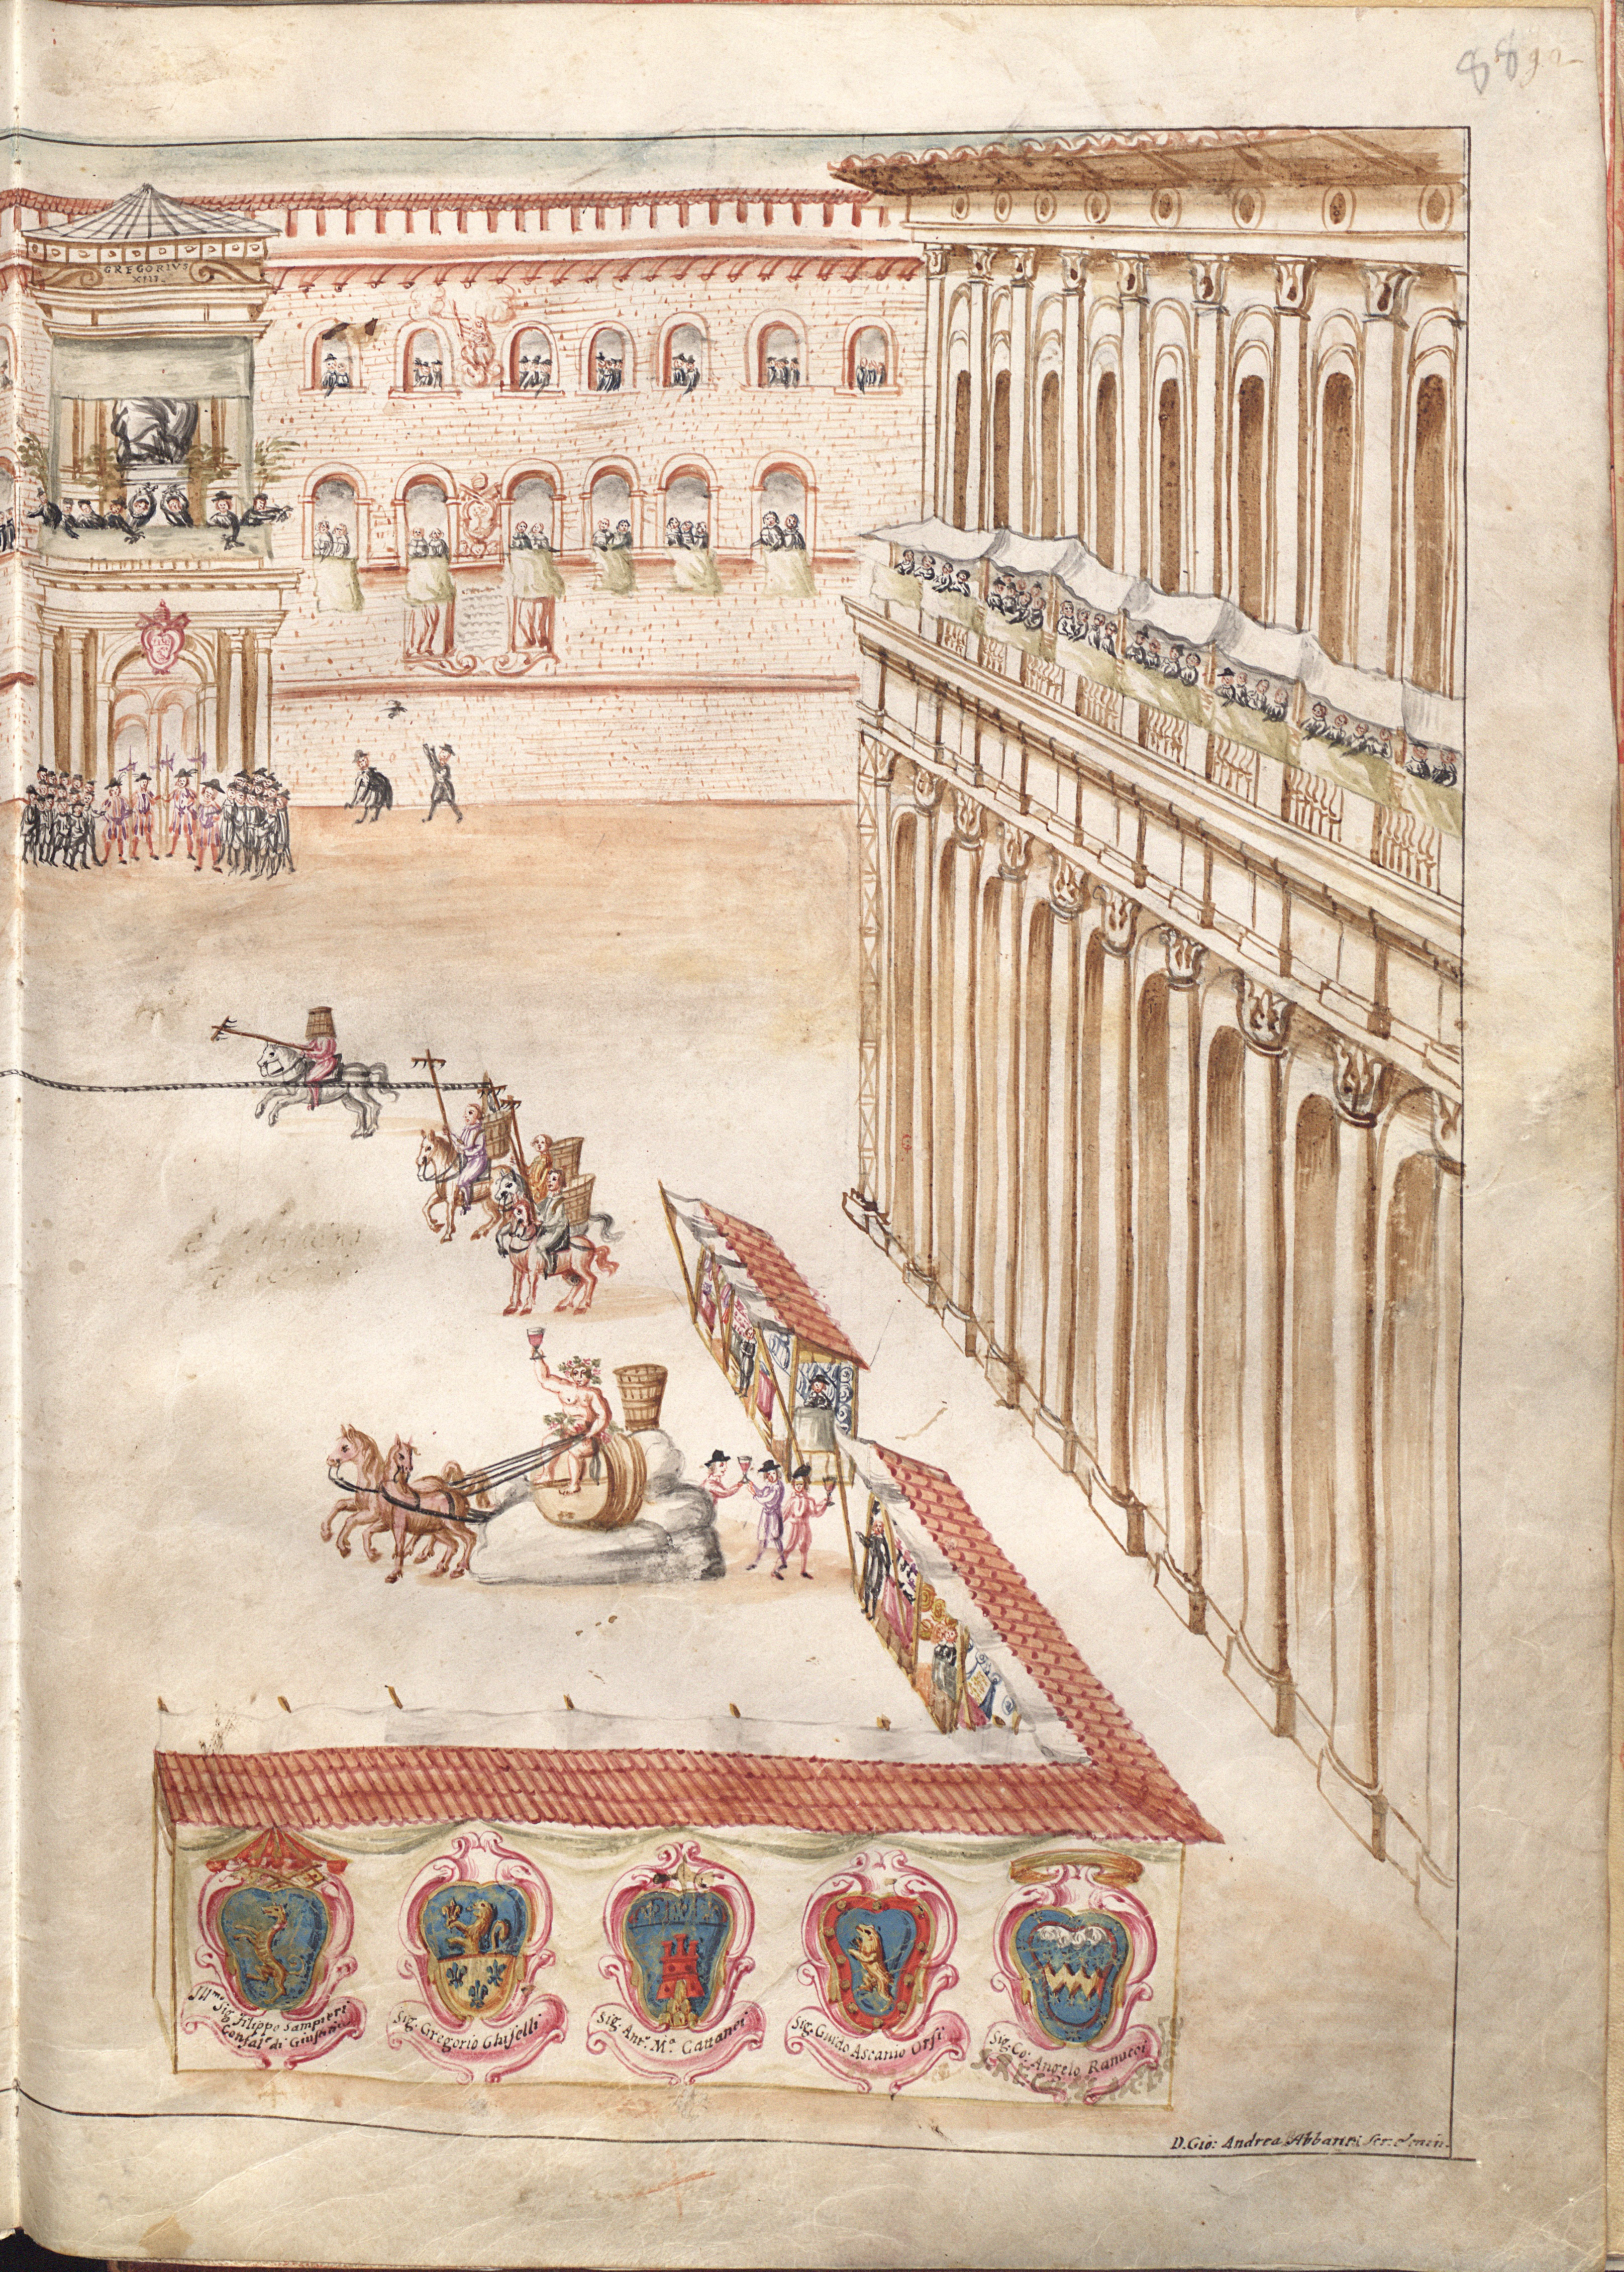 88 92
GREGORIVS
XIII.
Ill.mo Sig. Filippo Sampieri
Confal.re di Giustitia
Sig. Gregorio Ghiselli
Sig. Ant.o M.a Cattanei
Sig. Guido Ascanio Orsi
Sig. Co: Angelo Ranucci
D. Gio: Andrea Abbanti